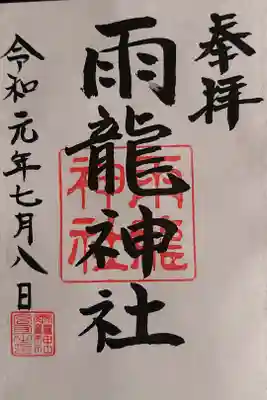 奉拝
雨龍神社
雨龍
神社
令和元年七月八日